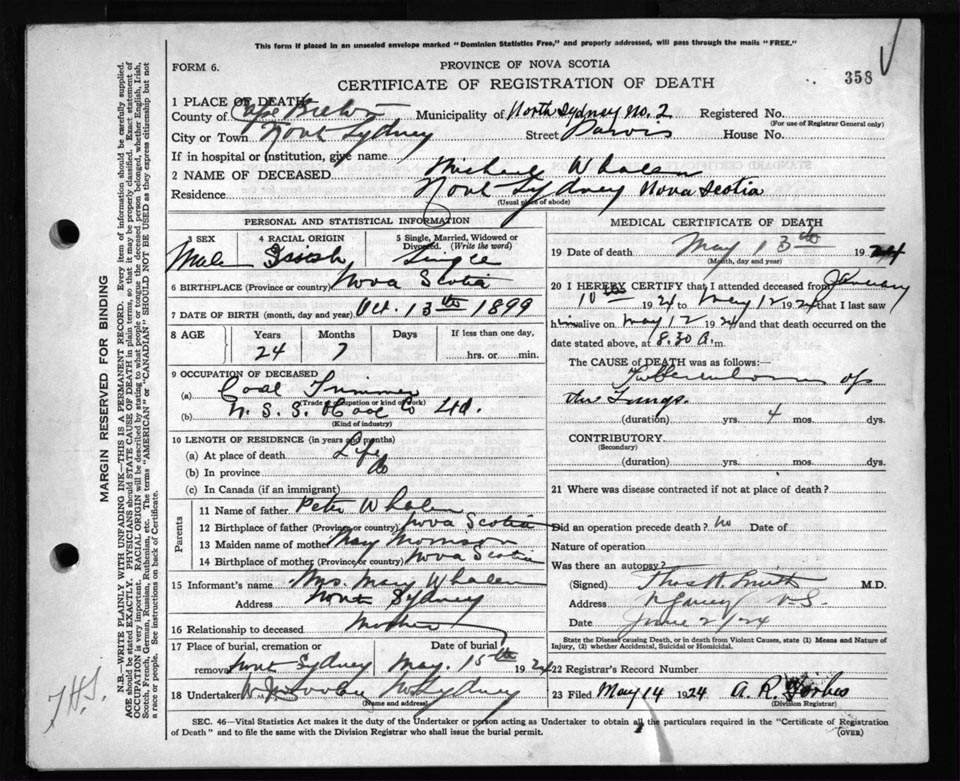 This form if placed in an unsealed envelope marked "Dominion Statistics Free," and properly addressed, will pass through the mails "FREE."
FORM 6.
PROVINCE OF NOVA SCOTIA
CERTIFICATE OF REGISTRATION OF DEATH
358
1 PLACE OF DEATH
County of Cape Breton Municipality of North Sydney No. 2 Registered No.
(For use of Registrar General only)
City or Town North Sydney Street House No.
If in hospital or institution, give name
2 NAME OF DECEASED Michael Whalen
Residence North Sydney Nova Scotia
(Usual place of abode)
PERSONAL AND STATISTICAL INFORMATION
3 SEX 4 RACIAL ORIGIN 5 Single, Married, Widowed or Divorced. (Write the word)
Male Irish Single
6 BIRTHPLACE (Province or country) Nova Scotia
7 DATE OF BIRTH (month, day and year) Oct. 13th 1899
8 AGE Years Months Days If less than one day,
24 7 hrs. or min.
9 OCCUPATION OF DECEASED
(a) Coal Trimmer
(Trade, occupation or kind of work)
(b) N. S. S. & Coal Co Ltd.
(Kind of industry)
10 LENGTH OF RESIDENCE (in years and months)
(a) At place of death Life
(b) In province do
(c) In Canada (if an immigrant)
Parents
11 Name of father Peter Whalen
12 Birthplace of father (Province or country) Nova Scotia
13 Maiden name of mother Mary Morrison
14 Birthplace of mother (Province or country) Nova Scotia
15 Informant's name Mrs. Mary Whalen
Address North Sydney
16 Relationship to deceased Mother
17 Place of burial, cremation or removal Date of burial
North Sydney May. 15th 1924
18 Undertaker N Sydney
(Name and address)
MEDICAL CERTIFICATE OF DEATH
19 Date of death May 13th 1924
(Month, day and year)
20 I HEREBY CERTIFY that I attended deceased from January
10th 1924 to May 12 1924 that I last saw
him alive on May 12 1924 and that death occurred on the
date stated above, at 8.30 a.m.
The CAUSE of DEATH was as follows:—
Tuberculosis of
the Lungs.
(duration) yrs. 4 mos. dys.
CONTRIBUTORY
(Secondary)
(duration) yrs. mos. dys.
21 Where was disease contracted if not at place of death?
Did an operation precede death? no Date of
Nature of operation
Was there an autopsy?
(Signed) Thos H. Smith M.D.
Address N Sydney N.S.
Date June 2/24
State the Disease causing Death, or in death from Violent Causes, state (1) Means and Nature of
Injury, (2) whether Accidental, Suicidal or Homicidal.
22 Registrar's Record Number
23 Filed May 14 1924 A. R. Forbes
(Division Registrar)
SEC. 46—Vital Statistics Act makes it the duty of the Undertaker or person acting as Undertaker to obtain all the particulars required in the "Certificate of Registration
of Death" and to file the same with the Division Registrar who shall issue the burial permit.
(OVER)
MARGIN RESERVED FOR BINDING
N.B.—WRITE PLAINLY WITH UNFADING INK—THIS IS A PERMANENT RECORD. Every item of information should be carefully supplied.
AGE should be stated EXACTLY. PHYSICIANS should STATE CAUSE OF DEATH in plain terms, so that it may be properly classified. Exact statement of
OCCUPATION is very important. RACIAL ORIGIN will be described by stating to what people or tongue the deceased person belonged, whether English, Irish,
Scotch, French, German, Russian, Ruthenian, etc. The terms "AMERICAN" or "CANADIAN" SHOULD NOT BE USED as they express citizenship but not
a race or people. See instructions on back of Certificate.